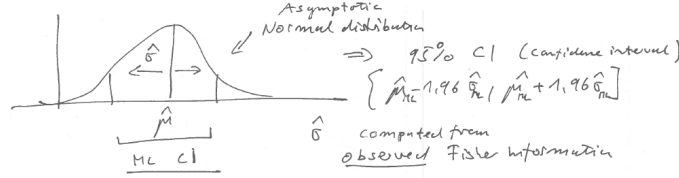 Asymptotic
Normal distribution
σ̂
⇒ 95% CI (confidence interval)
[μ̂_ML - 1,96 σ̂_ML, μ̂_ML + 1,96 σ̂_ML]
μ̂
ML CI
σ̂ computed from
observed Fisher information